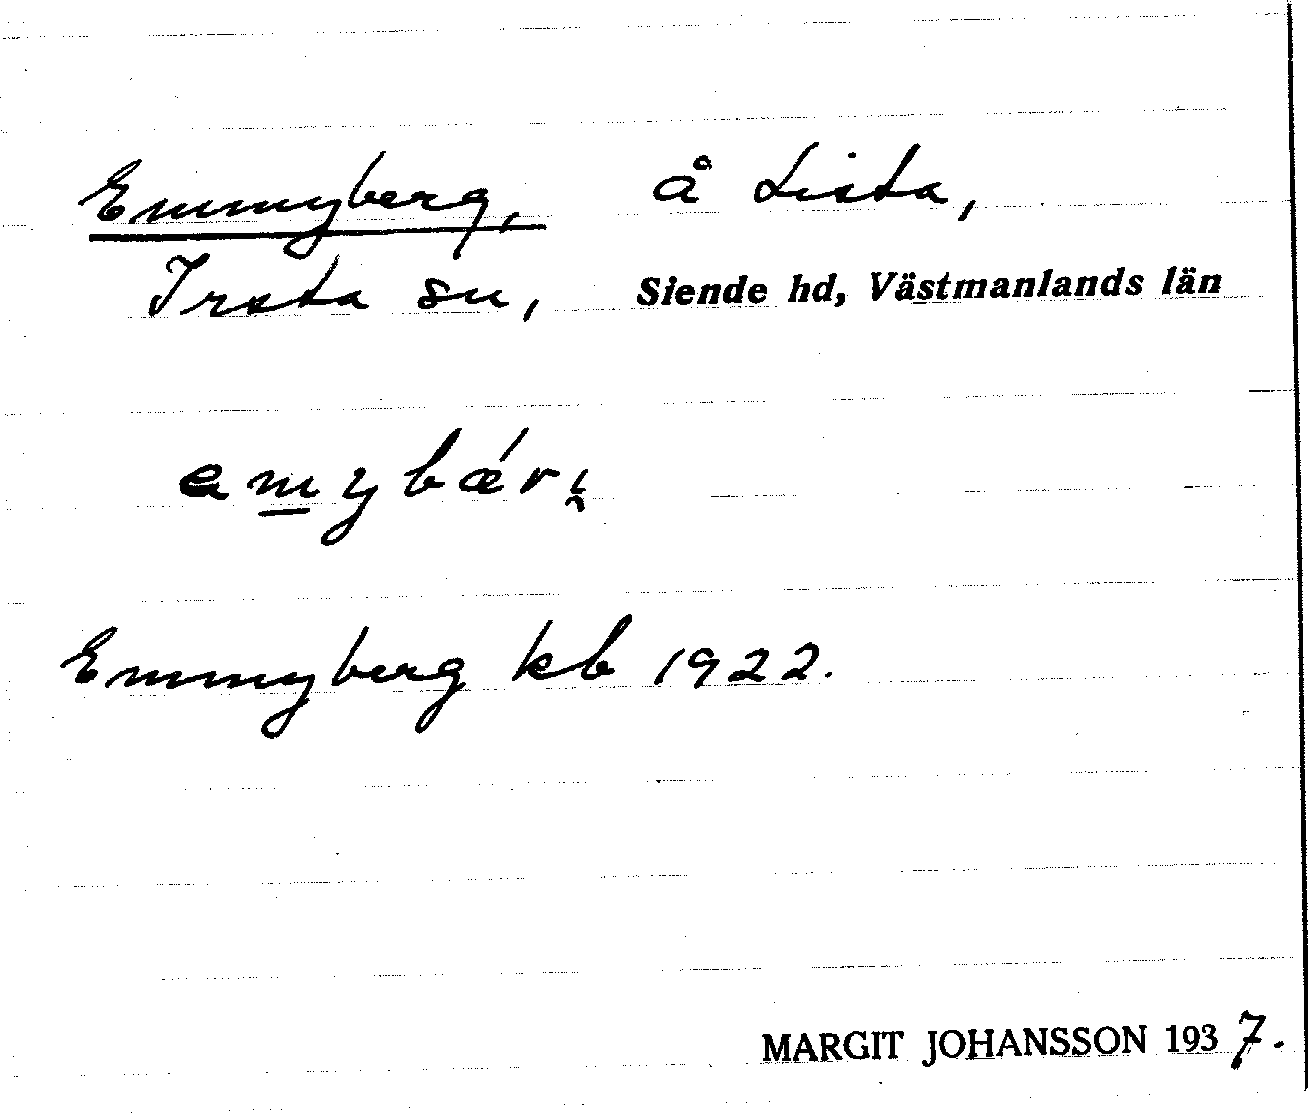 Emmyberg, å Lista,
Irsta sn, Siende hd, Västmanlands län
em̲ybǽrı̯
Emmyberg kb 1922.
MARGIT JOHANSSON 1937.